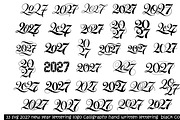 2027 2027 2027 2027 2027 2027
2027 2027 20 27 2027 20 27 2027
2027 20 27 2027 2027 2027 20 27 2027
2027 2027 2027 2027 2027 2027
2027 2027 2027 2027 2027 2027
33 big 2027 new year lettering logo Calligraphy hand written lettering. black Co